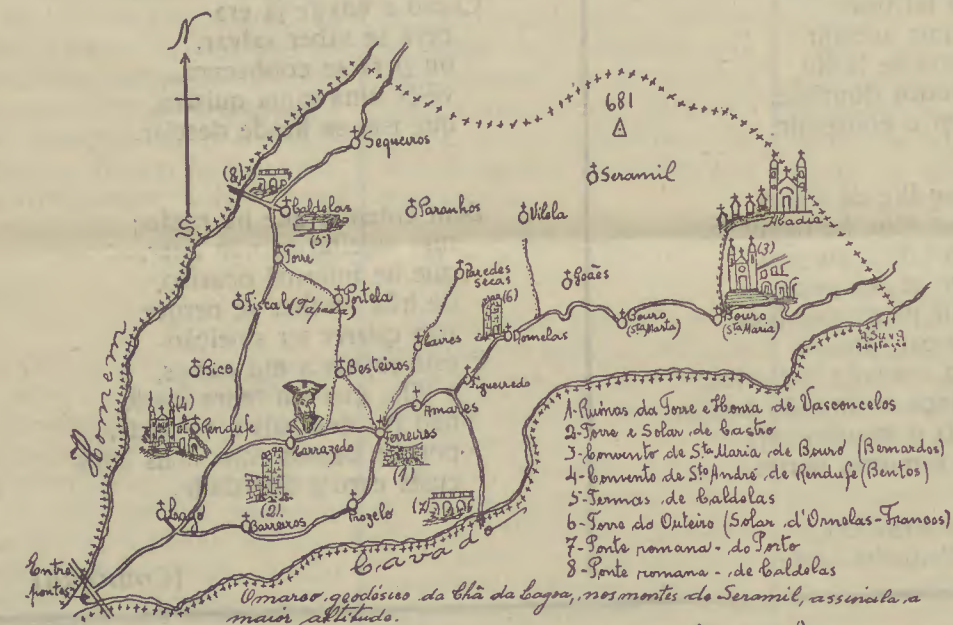 N
681
Sequeiros
Seramil
(8)
Caldelas
(5)
Paranhos
Vilela
Abadia
(3)
Torre
Paredes
secas
Goães
(6)
Fiscal (Tapada)
Portela
Bouro
(Sta Marta)
Bouro
(Sta Maria)
Dornelas
Caires
Bico
Besteiros
Figueiredo
Amares
(4)
Rendufe
Carrazedo
Ferreiros
(1)
(2)
(7)
Lago
Barreiros
Prozelo
Homem
Cávado
Entre
pontes
1-Ruinas da Torre e Honra de Vasconcelos
2-Torre e Solar de Castro
3-Convento de Sta Maria de Bouro (Bernardos)
4-Convento de Sto André de Rendufe (Bentos)
5-Termas de Caldelas
6-Torre do Outeiro (Solar d'Ornelas-Francos)
7-Ponte romana-do Porto
8-Ponte romana-de Caldelas
O marco geodésico da Chã da Lagoa, nos montes de Seramil, assinala a
maior altitude.